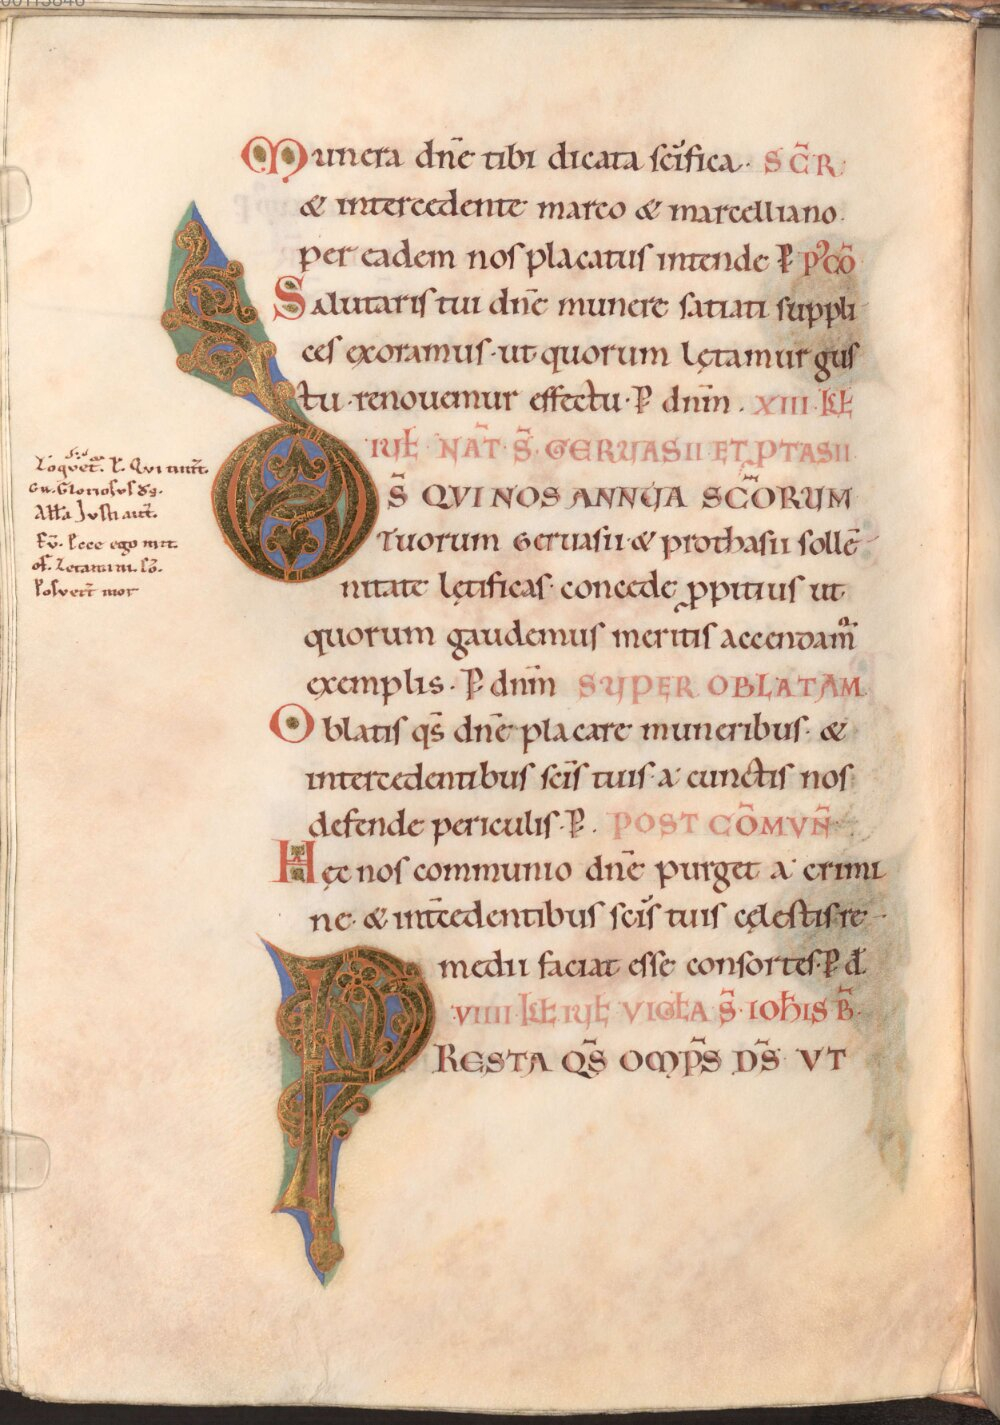 Munera dn̄e tibi dicata sc̄ifica. SC̄R
& intercedente marco & marcelliano.
per eadem nos placatus intende P̄ P'CŌ
Salutaris tui dn̄e munere satiati suppli
ces exoramus. ut quorum lętamur gus
tu. renouemur effectu. P̄ dnm̄. XIII. KƗ
IUƗ NAT̄ S̄. GERUASII ET PTASII
DS̄ QVI NOS ANNUA SC̄ORUM
Tuorum Geruasii & prothasii sollē
nitate lętificas. concede ꝓpitius ut
quorum gaudemus meritis accendam̄
exemplis. P̄ dnm̄ SUPER OBLATAM
Oblatis qs̄ dn̄e placare muneribus. &
intercedentibus sc̄is tuis a cunctis nos
defende periculis. P̄. POST CŌMVN̄
Hęc nos communio dn̄e purget a crimi
ne. & int̄cedentibus sc̄is tuis cęlestis re-
medii faciat esse consortes. P̄ d̄
VIIII KƗ IUƗ VIGƗA S̄. IOHIS B̄.
PRESTA QS̄ OMPS̄ DS̄ VT
Loquet̄. P̄. Qui
G̅. Gloriosus ds̄.
All̄a Justi aut̄.
Eū. Ecce ego mit.
of. Letamini. Cō.
Posuer̄t mor